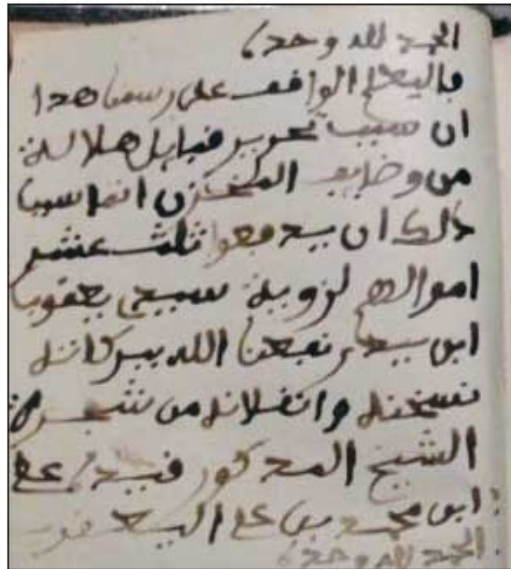 الحمد لله وحده
فاليعلم الواقف على رسمنا هدا
ان سبب تحرير قبايل هلالة
من وضايف المخزن انما سببا
ذلك ان يدفعوا ثلث عشر
اموالهم لزوية سيدي يعقوب
ابن يدر نفعنا الله ببركاته
نسخته وانقلاته من شجرة
الشيخ المدكور قيده علي
ابن محمد بن علي اليعقوبي
الحمد لله وحده